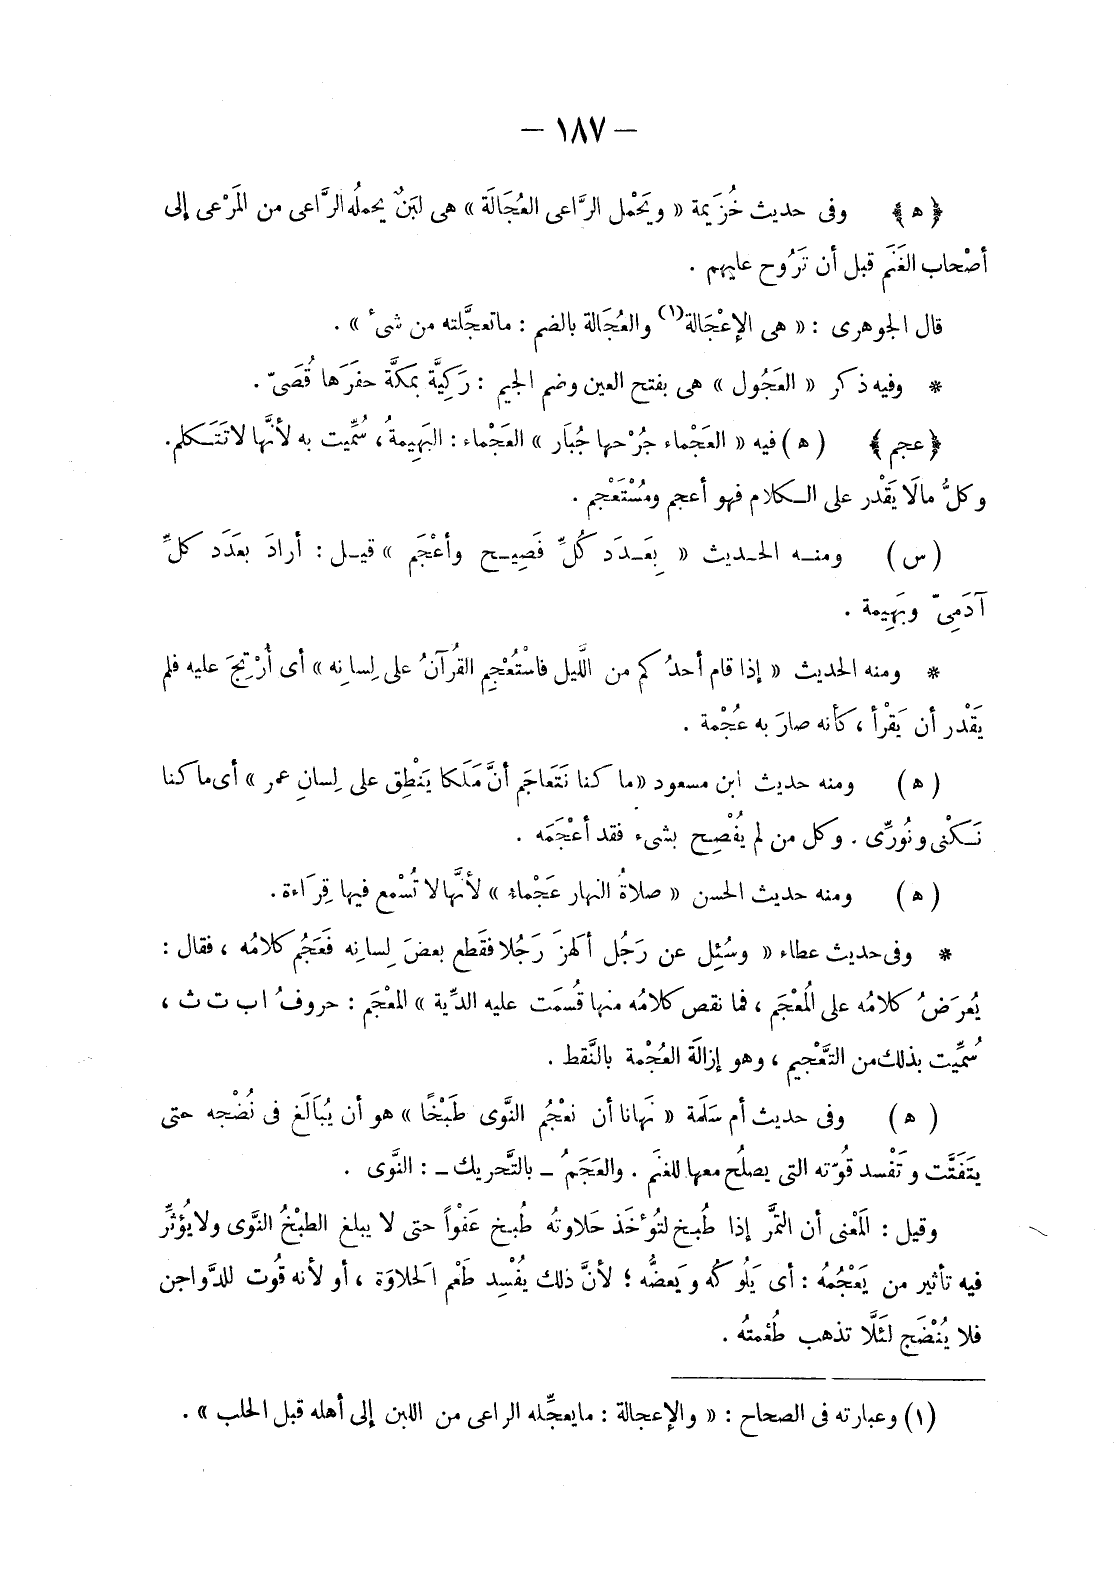 — ١٨٧ —
﴿ ه ﴾ وفى حديث خُزَيمة « ويَحْمل الرَّاعى العُجَالَة » هى لبَنٌ يحملُه الرَّاعى من المَرْعى إلى
أصْحاب الغَنَم قبل أن تَرُوح عليهم .
قال الجوهرى : « هى الإعْجَالة(١) والعُجَالة بالضم : ماتعجَّلته من شىٔ » .
* وفيه ذكر « العَجُول » هى بفتح العين وضم الجيم : رَكِيَّة بمكَّة حفَرَها قُصَىّ .
﴿ عجم ﴾ ( ه ) فيه « العَجْماء جُرْحها جُبَار » العَجْماء : البَهِيمةُ ، سُمِّيت به لأنَّها لاتَتَكلم.
وكلُّ مالَا يَقْدر على الكلام فهو أعجم ومُسْتَعْجِم .
( س ) ومنه الحديث « بِعَدَد كُلِّ فَصِيح وأعْجَم » قيل : أرادَ بعَدَد كلِّ
آدَمِىّ وبَهِيمة .
* ومنه الحديث « إذا قام أحدُكم من اللَّيل فاسْتُعْجِم القُرآنُ على لِسانِه » أى أُرْتِجَ عليه فلم
يَقْدر أن يَقْرأ ، كأنه صارَ به عُجْمة .
( ه ) ومنه حديث ابن مسعود « ما كنا نَتَعاجَم أنَّ مَلَكا يَنْطِق على لِسانِ عمر » أى ما كنا
نَكْنى ونُورِّى . وكل من لم يُفْصِح بشىء فقد أعْجَمَه .
( ه ) ومنه حديث الحسن « صلاةُ النهار عَجْماءُ » لأنَّها لا تُسْمع فيها قِرَاءة .
* وفى حديث عطاء « وسُئِل عن رَجُل ألهزَ رَجُلا فقَطع بعضَ لِسانِه فَعَجُم كلامُه ، فقال :
يُعرَضُ كلامُه على المُعْجَم ، فما نقص كلامُه منها قُسمَت عليه الدِّية » المعْجَم : حروفُ ا ب ت ث ،
سُمِّيت بذلك من التَّعْجيم ، وهو إزالَة العُجْمة بالنَّقط .
( ه ) وفى حديث أم سَلَمة « نَهانا أن نعْجُم النَّوى طَبْخًا » هو أن يُبَالَغ فى نُضْجه حتى
يتَفَتَّت وتَفْسد قُوّته التى يصلُح معها للغنَم . والعَجَمُ ــ بالتَّحريك ــ : النَّوى .
وقيل : المَعْنى أن التمَّر إذا طُبخ لتُؤخَذ حَلاوتُه طُبخ عَفْواً حتى لا يبلغ الطبْخُ النَّوى ولا يُؤثِّر
فيه تأثير من يَعْجُمُه : أى يَلُوكُه ويَعضُّه ؛ لأنَّ ذلك يُفْسِد طَعْم الحلاوَة ، أو لأنه قُوت للدَّواجن
فلا يُنْضَج لئَلَّا تذهب طُعْمتُه .
(١) وعبارته فى الصحاح : « والإعجالة : مايعجِّله الراعى من اللبن إلى أهله قبل الحلب » .